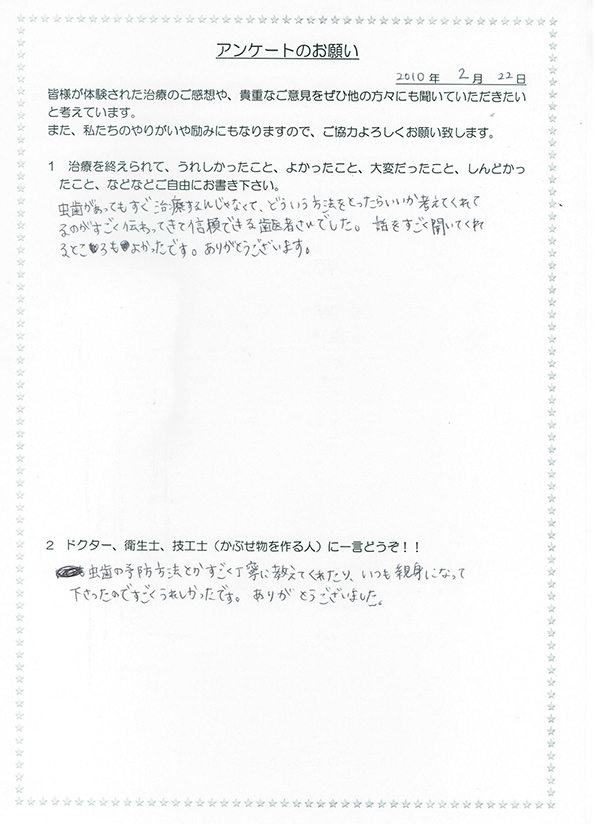 アンケートのお願い
2010年 2月 22日
皆様が体験された治療のご感想や、貴重なご意見をぜひ他の方々にも聞いていただきたい
と考えています。
また、私たちのやりがいや励みにもなりますので、ご協力よろしくお願い致します。
1 治療を終えられて、うれしかったこと、よかったこと、大変だったこと、しんどかっ
たこと、などなどご自由にお書き下さい。
虫歯があってもすぐ治療するんじゃなくて、どういう方法をとったらいいか考えてくれて
るのがすごく伝わってきて信頼できる歯医者さんでした。 話をすごく聞いてくれ
るところもよかったです。ありがとうございます。
2 ドクター、衛生士、技工士(かぶせ物を作る人)に一言どうぞ!!
虫歯の予防方法とかすごく丁寧に教えてくれたり、いつも親身になって
下さったのですごくうれしかったです。ありがとうございました。